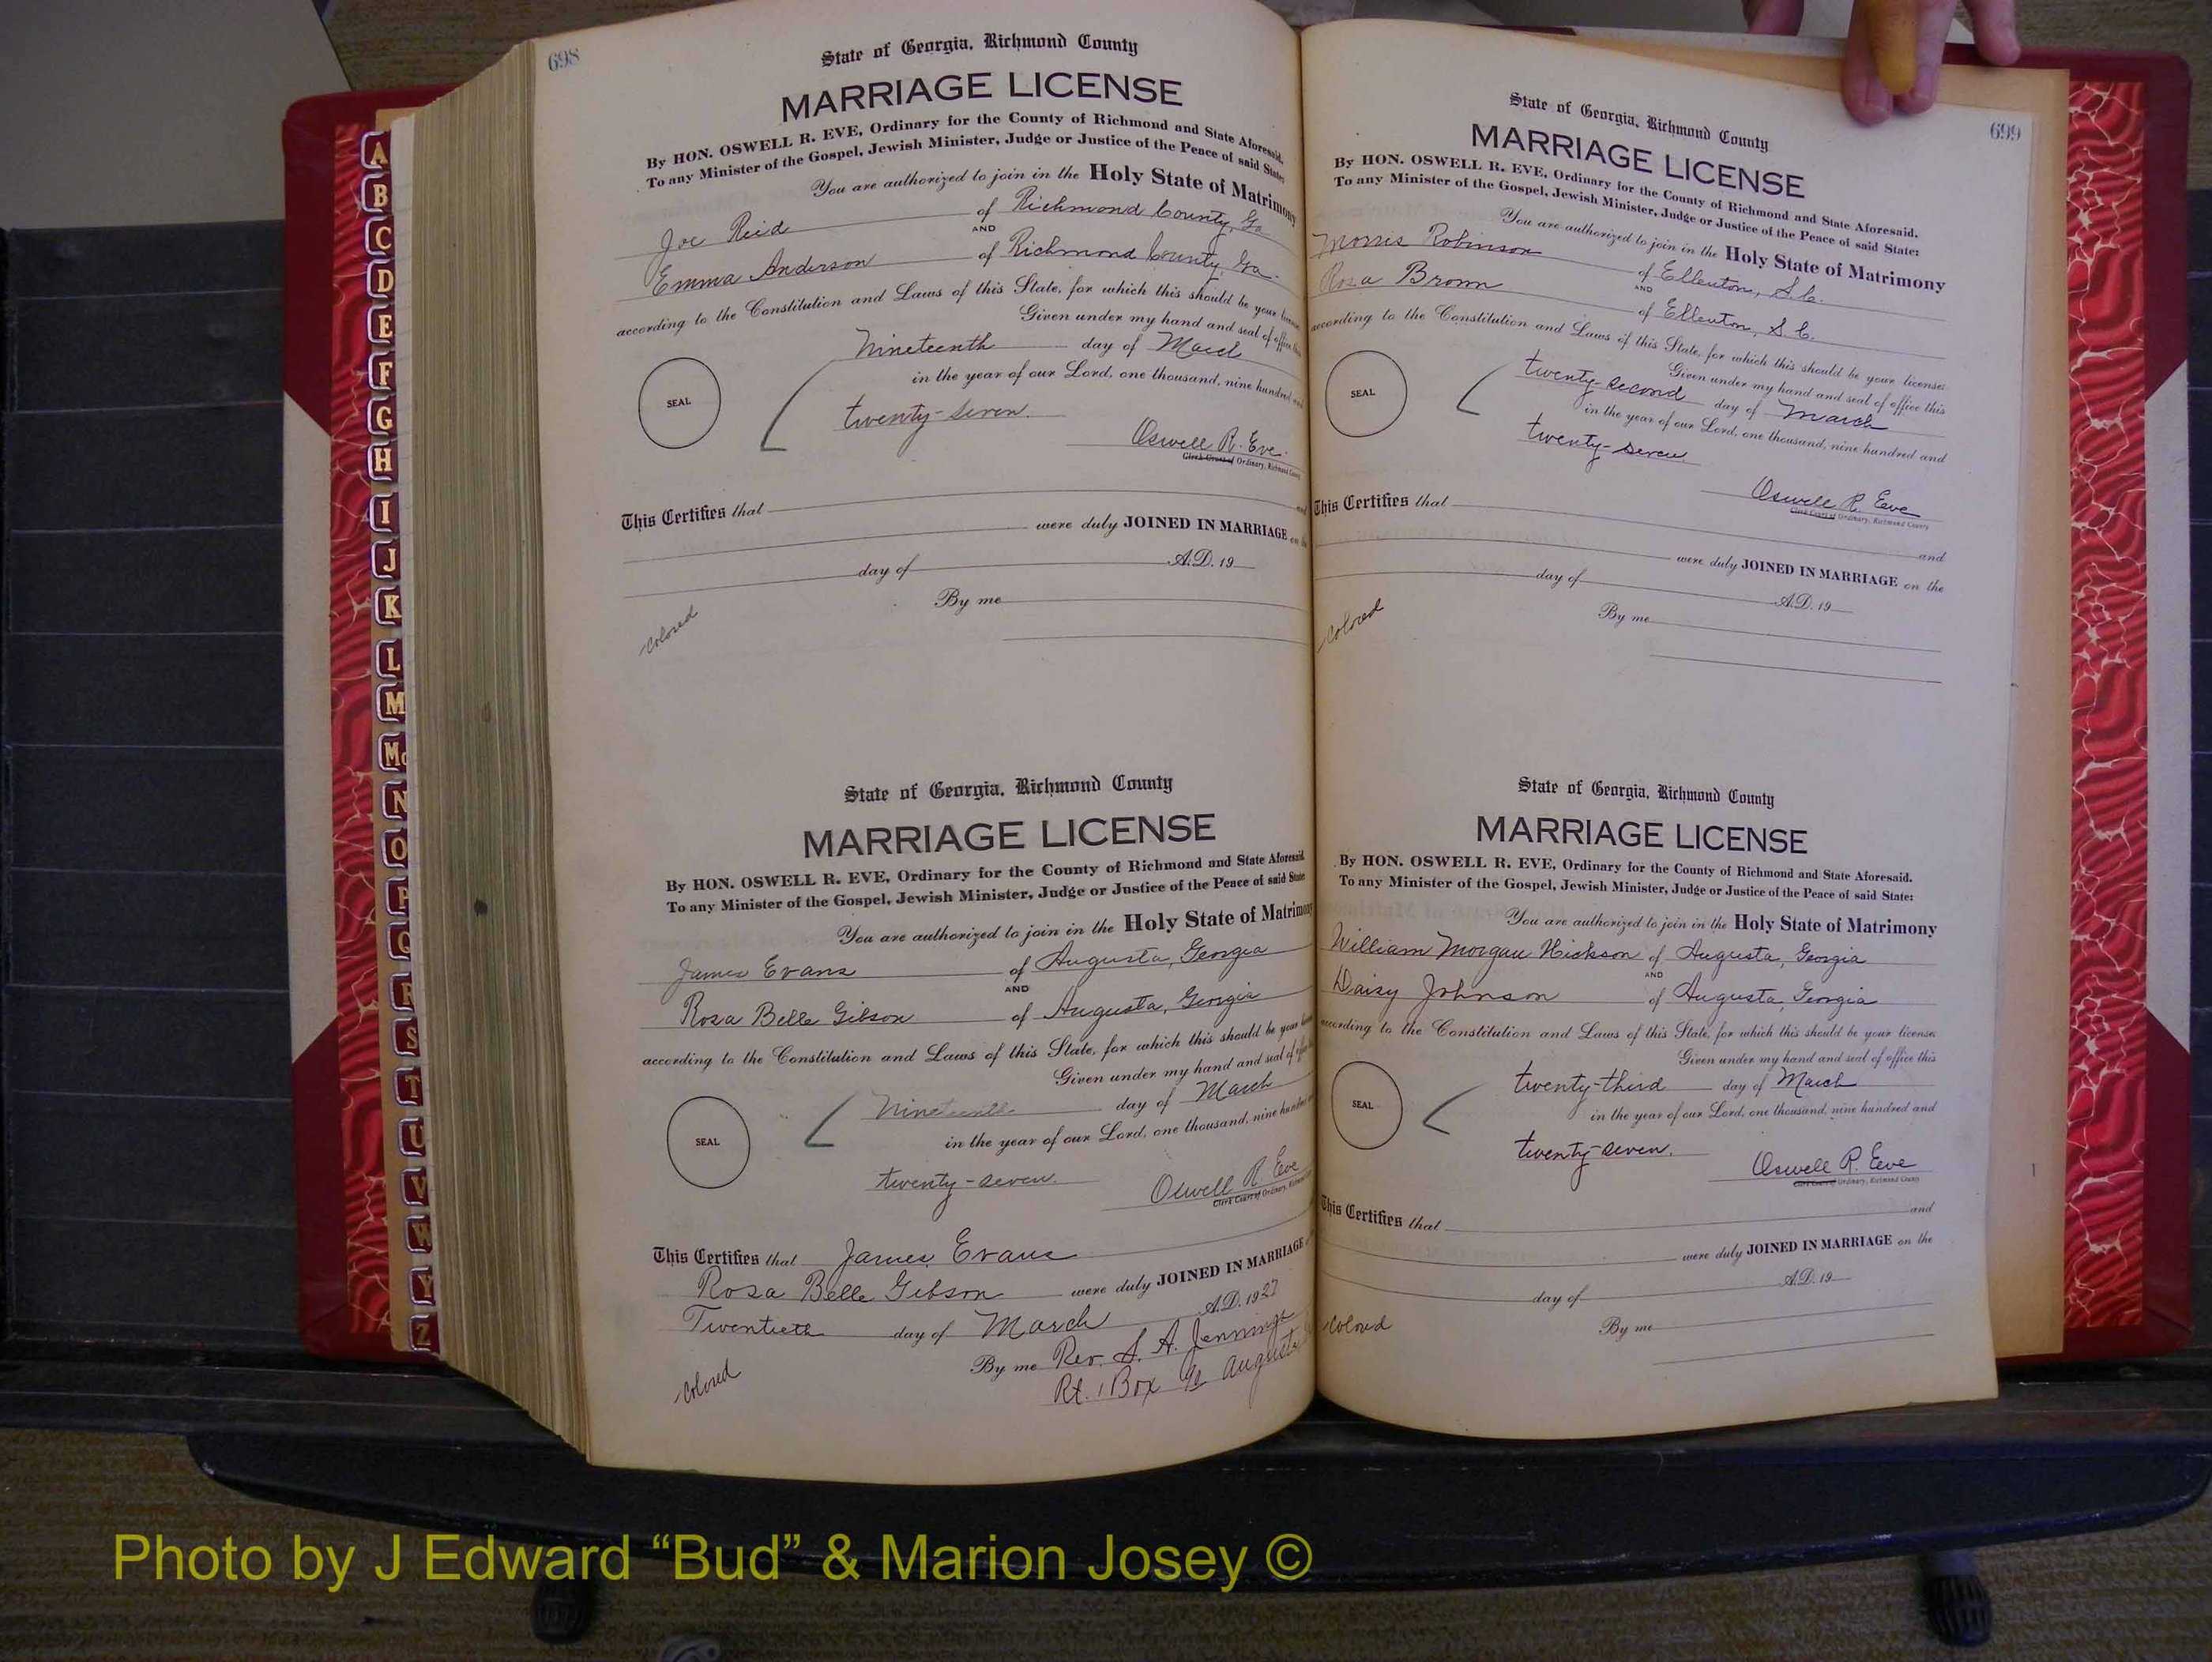 698
State of Georgia, Richmond County
MARRIAGE LICENSE
By HON. OSWELL R. EVE, Ordinary for the County of Richmond and State Aforesaid.
To any Minister of the Gospel, Jewish Minister, Judge or Justice of the Peace of said State:
You are authorized to join in the Holy State of Matrimony
Joe Reid of Richmond County, Ga
AND
Emma Anderson of Richmond County, Ga.
according to the Constitution and Laws of this State, for which this should be your license
Given under my hand and seal of office this
Nineteenth day of March
in the year of our Lord, one thousand, nine hundred and
SEAL
twenty-seven.
Oswell R. Eve.
Clerk Court of Ordinary, Richmond County
This Certifies that and
were duly JOINED IN MARRIAGE on the
day of A.D. 19
By me
Colored
State of Georgia, Richmond County
MARRIAGE LICENSE
By HON. OSWELL R. EVE, Ordinary for the County of Richmond and State Aforesaid.
To any Minister of the Gospel, Jewish Minister, Judge or Justice of the Peace of said State
You are authorized to join in the Holy State of Matrimony
James Evans of Augusta, Georgia
AND
Rosa Belle Gibson of Augusta, Georgia
according to the Constitution and Laws of this State, for which this should be your
Given under my hand and seal of office
Nineteenth day of March
in the year of our Lord, one thousand, nine hundred
SEAL
twenty-seven.
Oswell R. Eve
Clerk Court of Ordinary, Richmond
This Certifies that James Evans
Rosa Belle Gibson were duly JOINED IN MARRIAGE
Twentieth day of March A.D. 1927
By me Rev. S. A. Jennings
Rt. 1 Box Augusta
Colored
699
State of Georgia, Richmond County
MARRIAGE LICENSE
By HON. OSWELL R. EVE, Ordinary for the County of Richmond and State Aforesaid.
To any Minister of the Gospel, Jewish Minister, Judge or Justice of the Peace of said State:
You are authorized to join in the Holy State of Matrimony
Morris Robinson of Ellenton, S.C.
AND
Rosa Brown of Ellenton, S.C.
according to the Constitution and Laws of this State, for which this should be your licenses
Given under my hand and seal of office this
twenty-second day of March
in the year of our Lord, one thousand, nine hundred and
SEAL
twenty-seven.
Oswell R. Eve
Clerk Court of Ordinary, Richmond County
This Certifies that and
were duly JOINED IN MARRIAGE on the
day of A.D. 19
By me
Colored
State of Georgia, Richmond County
MARRIAGE LICENSE
By HON. OSWELL R. EVE, Ordinary for the County of Richmond and State Aforesaid.
To any Minister of the Gospel, Jewish Minister, Judge or Justice of the Peace of said State:
You are authorized to join in the Holy State of Matrimony
William Morgan Hickson of Augusta, Georgia
AND
Daisy Johnson of Augusta, Georgia
according to the Constitution and Laws of this State, for which this should be your licenses
Given under my hand and seal of office this
twenty-third day of March
in the year of our Lord, one thousand, nine hundred and
SEAL
twenty-seven.
Oswell R. Eve
Clerk Court of Ordinary, Richmond County
This Certifies that and
were duly JOINED IN MARRIAGE on the
day of A.D. 19
By me
Colored
A
B
C
D
E
F
G
H
I
J
K
L
M
Mc
N
O
P
Q
R
S
T
U
V
W
Y
Z
Photo by J Edward “Bud” & Marion Josey ©